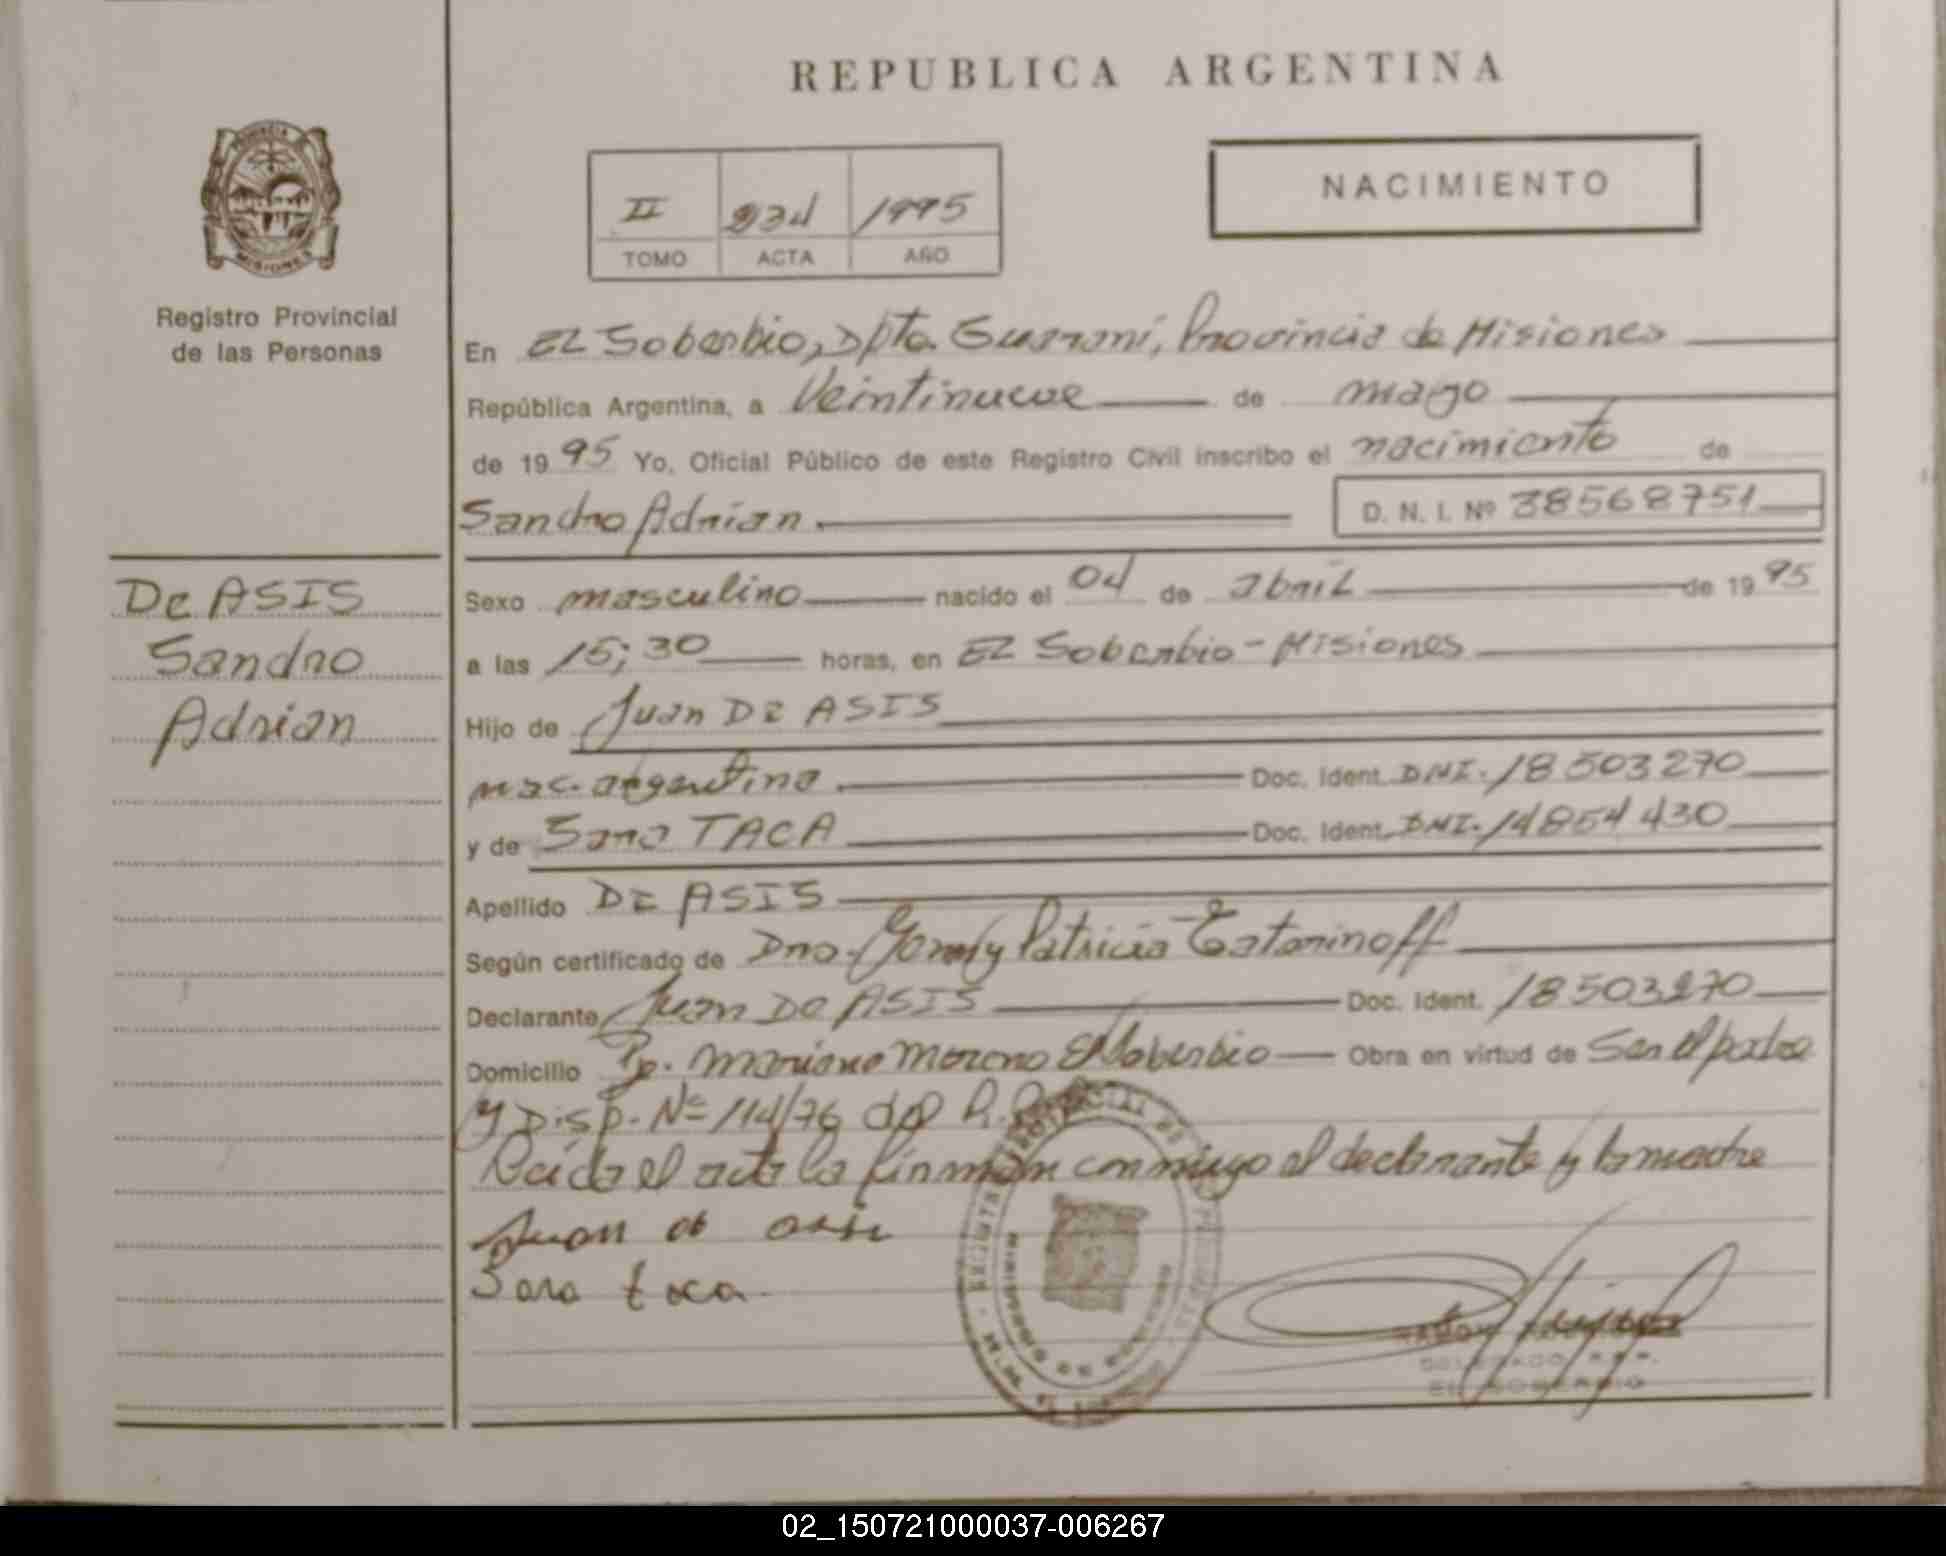 REPUBLICA ARGENTINA
PROVINCIA
MISIONES
Registro Provincial
de las Personas
II 234 1995
TOMO ACTA AÑO
NACIMIENTO
En EL Soberbio, Dpto. Guaraní, Provincia de Misiones
República Argentina, a Veintinueve de mayo
de 19 95 Yo, Oficial Público de este Registro Civil inscribo el nacimiento de
Sandro Adrian D. N. I. Nº 38568751
De ASIS
Sandro
Adrian
Sexo masculino nacido el 04 de abril de 19 95
a las 15;30 horas, en EL Soberbio - Misiones
Hijo de Juan DE ASIS
nac. argentina Doc. Ident. DNI. 18503270
y de Sara TACA Doc. Ident. DNI. 14854430
Apellido DE ASIS
Según certificado de Dra. Patricia
Declarante Juan De ASIS Doc. Ident. 18503270
Domicilio Pje. Mariano Moreno El Soberbio Obra en virtud de Ser el padre
y Disp. Nº 114/76 del R.
Leída el acta la firman conmigo el declarante y la madre
Juan de asis
Sara taca
DELEGADO R.P.P.
EL SOBERBIO
02_150721000037-006267